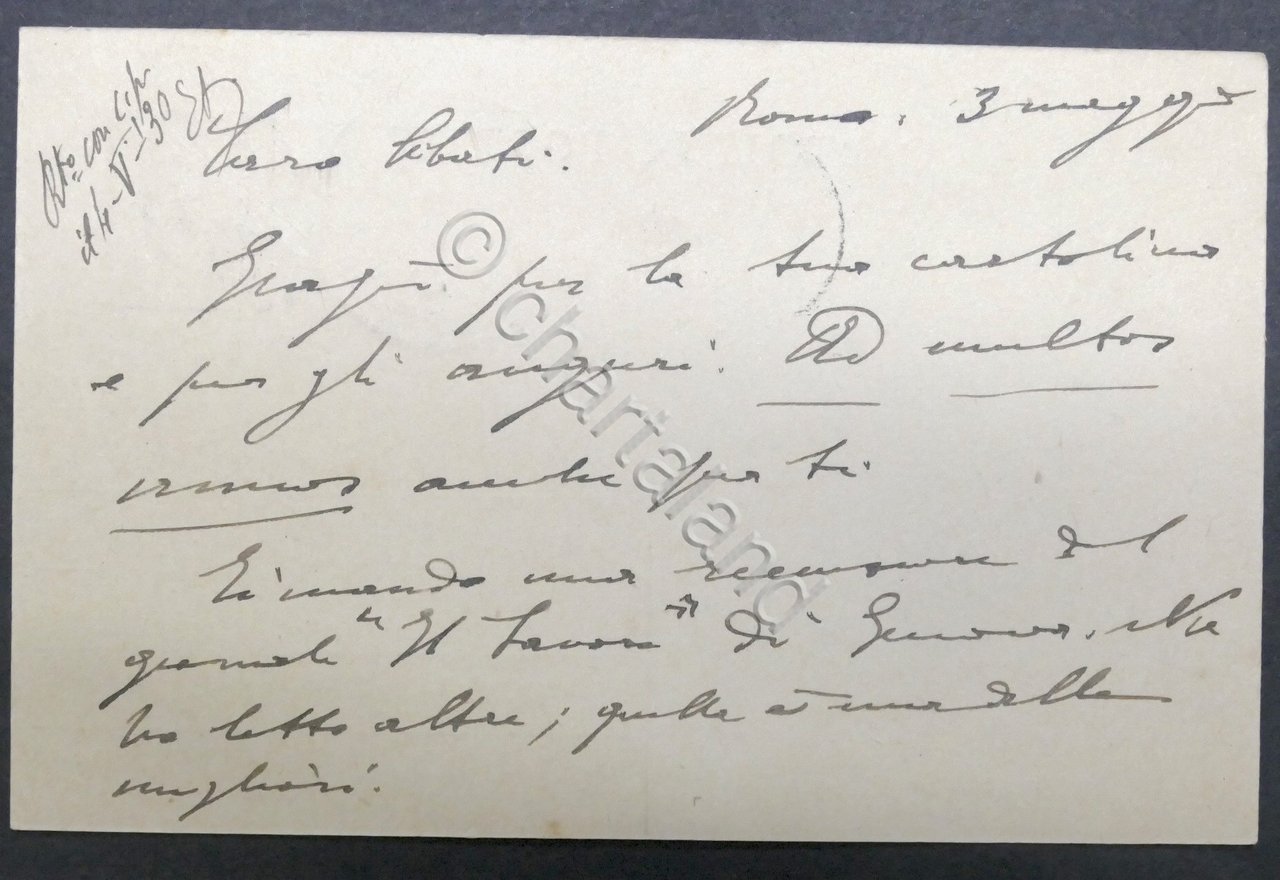 Rto con c.p.
il 4-V-1930
Roma. 3 maggio
Caro Abati.
Grazie per la tua cartolina
e per gli auguri. Ad multos
annos anche per te
Ti mando una recensione del
giornale "Il Lavoro" di Genova. Ne
ho letto altre; quella è una delle
migliori.
© chartaland